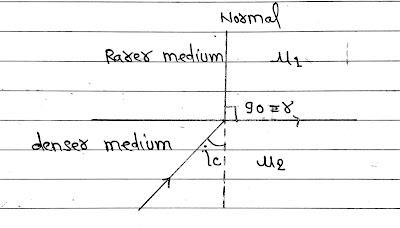 Normal
Rarer medium μ1
90 = r
denser medium ic μ2